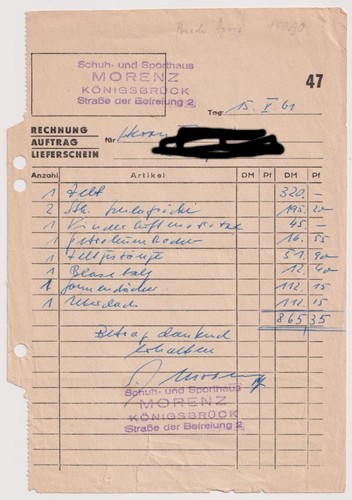 Schuh- und Sporthaus
MORENZ
KÖNIGSBRÜCK
Straße der Befreiung 2
47
Tag: 15. V 61
RECHNUNG
AUFTRAG
LIEFERSCHEIN
für Herrn
Anzahl Artikel DM Pf DM Pf
1 Zelt 320,–
2 Stk. 195 20
1 Kinderluftmatratze 45 –
1 Petroleumkocher 16 55
1 Zeltgestänge 51 90
1 Blasebalg 12 40
1 Sonnendächer 112 15
1 Überdach 112 15
865 35
Betrag dankend
erhalten
Schuh- und Sporthaus
MORENZ
KÖNIGSBRÜCK
Straße der Befreiung 2